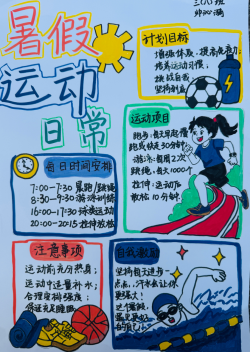 暑假
运动
日常
三(
班
计划目标
增强体质,提高免疫力;
培养运动习惯,
挑战自我
坚持到底
运动项目
跑步:每天晨起慢
跑或快走30分钟
游泳:每周2次
跳绳:每天1000个
拉伸:运动后
放松10分钟
每日时间安排
7:00-7:30 晨跑/跳绳
8:30-9:30 游泳训练
16:00-17:30 球类运动
20:00-20:15 拉伸放松
注意事项
运动前充分热身;
运动中适量补水;
合理安排强度;
保证充足睡眠
自我激励
坚持每天进步一
点点,汗水会让你
更强大!
这个暑假,
自己!